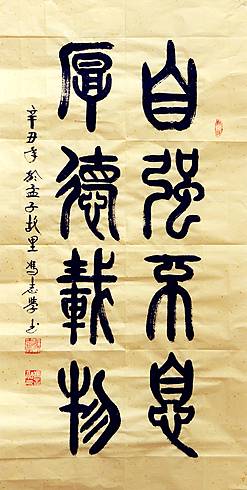 自强不息
厚德載物
辛丑年於孟子故里馮志學书